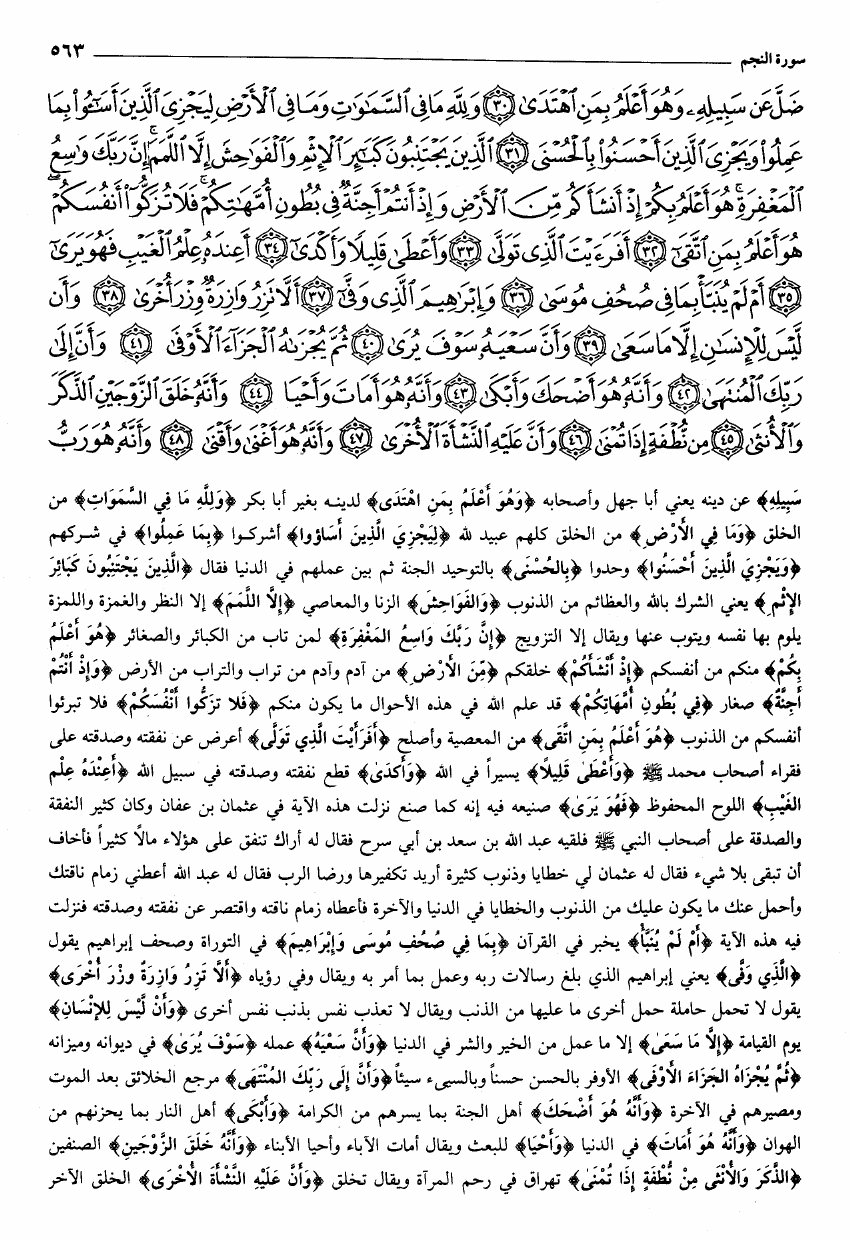 سورة النجم ٥٦٣
ضَلَّ عَن سَبِيلِهِۦ وَهُوَ أَعْلَمُ بِمَنِ ٱهْتَدَىٰ ﴿٣٠﴾ وَلِلَّهِ مَا فِى ٱلسَّمَـٰوَٰتِ وَمَا فِى ٱلْأَرْضِ لِيَجْزِىَ ٱلَّذِينَ أَسَـٰٓـُٔوا۟ بِمَا
عَمِلُوا۟ وَيَجْزِىَ ٱلَّذِينَ أَحْسَنُوا۟ بِٱلْحُسْنَى ﴿٣١﴾ ٱلَّذِينَ يَجْتَنِبُونَ كَبَـٰٓئِرَ ٱلْإِثْمِ وَٱلْفَوَٰحِشَ إِلَّا ٱللَّمَمَ ۚ إِنَّ رَبَّكَ وَٰسِعُ
ٱلْمَغْفِرَةِ ۚ هُوَ أَعْلَمُ بِكُمْ إِذْ أَنشَأَكُم مِّنَ ٱلْأَرْضِ وَإِذْ أَنتُمْ أَجِنَّةٌ فِى بُطُونِ أُمَّهَـٰتِكُمْ ۖ فَلَا تُزَكُّوٓا۟ أَنفُسَكُمْ ۖ
هُوَ أَعْلَمُ بِمَنِ ٱتَّقَىٰٓ ﴿٣٢﴾ أَفَرَءَيْتَ ٱلَّذِى تَوَلَّىٰ ﴿٣٣﴾ وَأَعْطَىٰ قَلِيلًا وَأَكْدَىٰٓ ﴿٣٤﴾ أَعِندَهُۥ عِلْمُ ٱلْغَيْبِ فَهُوَ يَرَىٰٓ
﴿٣٥﴾ أَمْ لَمْ يُنَبَّأْ بِمَا فِى صُحُفِ مُوسَىٰ ﴿٣٦﴾ وَإِبْرَٰهِيمَ ٱلَّذِى وَفَّىٰٓ ﴿٣٧﴾ أَلَّا تَزِرُ وَازِرَةٌ وِزْرَ أُخْرَىٰ ﴿٣٨﴾ وَأَن
لَّيْسَ لِلْإِنسَـٰنِ إِلَّا مَا سَعَىٰ ﴿٣٩﴾ وَأَنَّ سَعْيَهُۥ سَوْفَ يُرَىٰ ﴿٤٠﴾ ثُمَّ يُجْزَىٰهُ ٱلْجَزَآءَ ٱلْأَوْفَىٰ ﴿٤١﴾ وَأَنَّ إِلَىٰ
رَبِّكَ ٱلْمُنتَهَىٰ ﴿٤٢﴾ وَأَنَّهُۥ هُوَ أَضْحَكَ وَأَبْكَىٰ ﴿٤٣﴾ وَأَنَّهُۥ هُوَ أَمَاتَ وَأَحْيَا ﴿٤٤﴾ وَأَنَّهُۥ خَلَقَ ٱلزَّوْجَيْنِ ٱلذَّكَرَ
وَٱلْأُنثَىٰ ﴿٤٥﴾ مِن نُّطْفَةٍ إِذَا تُمْنَىٰ ﴿٤٦﴾ وَأَنَّ عَلَيْهِ ٱلنَّشْأَةَ ٱلْأُخْرَىٰ ﴿٤٧﴾ وَأَنَّهُۥ هُوَ أَغْنَىٰ وَأَقْنَىٰ ﴿٤٨﴾ وَأَنَّهُۥ هُوَ رَبُّ
سَبِيلِهِ﴾ عن دينه يعني أبا جهل وأصحابه ﴿وَهُوَ أَعْلَمُ بِمَنِ اهْتَدَى﴾ لدينه بغير أبا بكر ﴿وَلِلَّهِ مَا فِي السَّمَوَاتِ﴾ من
الخلق ﴿وَمَا فِي الأَرْضِ﴾ من الخلق كلهم عبيد لله ﴿لِيَجْزِيَ الَّذِينَ أَسَاؤوا﴾ أشركوا ﴿بِمَا عَمِلُوا﴾ في شركهم
﴿وَيَجْزِيَ الَّذِينَ أَحْسَنُوا﴾ وحدوا ﴿بِالحُسْنَى﴾ بالتوحيد الجنة ثم بين عملهم في الدنيا فقال ﴿الَّذِينَ يَجْتَنِبُونَ كَبَائِرَ
الإِثْمِ﴾ يعني الشرك بالله والعظائم من الذنوب ﴿وَالفَوَاحِشَ﴾ الزنا والمعاصي ﴿إِلَّا اللَّمَمَ﴾ إلا النظر والغمزة واللمزة
يلوم بها نفسه ويتوب عنها ويقال إلا التزويج ﴿إِنَّ رَبَّكَ وَاسِعُ المَغْفِرَةِ﴾ لمن تاب من الكبائر والصغائر ﴿هُوَ أَعْلَمُ
بِكُمْ﴾ منكم من أنفسكم ﴿إِذْ أَنْشَأَكُمْ﴾ خلقكم ﴿مِّنَ الأَرْضِ﴾ من آدم وآدم من تراب والتراب من الأرض ﴿وَإِذْ أَنْتُمْ
أَجِنَّةٌ﴾ صغار ﴿فِي بُطُونِ أُمَّهَاتِكُمْ﴾ قد علم الله في هذه الأحوال ما يكون منكم ﴿فَلَا تُزَكُّوا أَنْفُسَكُمْ﴾ فلا تبرئوا
أنفسكم من الذنوب ﴿هُوَ أَعْلَمُ بِمَنِ اتَّقَى﴾ من المعصية وأصلح ﴿أَفَرَأَيْتَ الَّذِي تَوَلَّى﴾ أعرض عن نفقته وصدقته على
فقراء أصحاب محمد ﷺ ﴿وَأَعْطَى قَلِيلاً﴾ يسيراً في الله ﴿وَأَكدَى﴾ قطع نفقته وصدقته في سبيل الله ﴿أَعِنْدَهُ عِلْم
الغَيْبِ﴾ اللوح المحفوظ ﴿فَهُوَ يَرَى﴾ صنيعه فيه إنه كما صنع نزلت هذه الآية في عثمان بن عفان وكان كثير النفقة
والصدقة على أصحاب النبي ﷺ فلقيه عبد الله بن سعد بن أبي سرح فقال له أراك تنفق على هؤلاء مالاً كثيراً فأخاف
أن تبقى بلا شيء فقال له عثمان لي خطايا وذنوب كثيرة أريد تكفيرها ورضا الرب فقال له عبد الله أعطني زمام ناقتك
وأحمل عنك ما يكون عليك من الذنوب والخطايا في الدنيا والآخرة فأعطاه زمام ناقته واقتصر عن نفقته وصدقته فنزلت
فيه هذه الآية ﴿أَمْ لَمْ يُنَبَّأْ﴾ يخبر في القرآن ﴿بِمَا فِي صُحُفِ مُوسَى وَإِبْرَاهِيمَ﴾ في التوراة وصحف إبراهيم يقول
﴿الَّذِي وَفَّى﴾ يعني إبراهيم الذي بلغ رسالات ربه وعمل بما أمر به ويقال وفي رؤياه ﴿أَلَّا تَزِرُ وَازِرَةٌ وِزْرَ أُخْرَى﴾
يقول لا تحمل حاملة حمل أخرى ما عليها من الذنب ويقال لا تعذب نفس بذنب نفس أخرى ﴿وَأَنْ لَّيْسَ لِلإِنْسَانِ﴾
يوم القيامة ﴿إِلَّا مَا سَعَى﴾ إلا ما عمل من الخير والشر في الدنيا ﴿وَأَنَّ سَعْيَهُ﴾ عمله ﴿سَوْفَ يُرَى﴾ في ديوانه وميزانه
﴿ثُمَّ يُجْزَاهُ الجَزَاءَ الأَوْفَى﴾ الأوفر بالحسن حسناً وبالسيىء سيئاً ﴿وَأَنَّ إِلَى رَبِّكَ المُنْتَهَى﴾ مرجع الخلائق بعد الموت
ومصيرهم في الآخرة ﴿وَأَنَّهُ هُوَ أَضْحَكَ﴾ أهل الجنة بما يسرهم من الكرامة ﴿وَأَبْكَى﴾ أهل النار بما يحزنهم من
الهوان ﴿وَأَنَّهُ هُوَ أَمَاتَ﴾ في الدنيا ﴿وَأَحْيَا﴾ للبعث ويقال أمات الآباء وأحيا الأبناء ﴿وَأَنَّهُ خَلَقَ الزَّوْجَينِ﴾ الصنفين
﴿الذَّكَرَ وَالأُنْثَى مِنْ نُّطْفَةٍ إِذَا تُمْنَى﴾ تهراق في رحم المرآة ويقال تخلق ﴿وَأَنَّ عَلَيْهِ النَّشْأَةَ الأُخْرَى﴾ الخلق الآخر